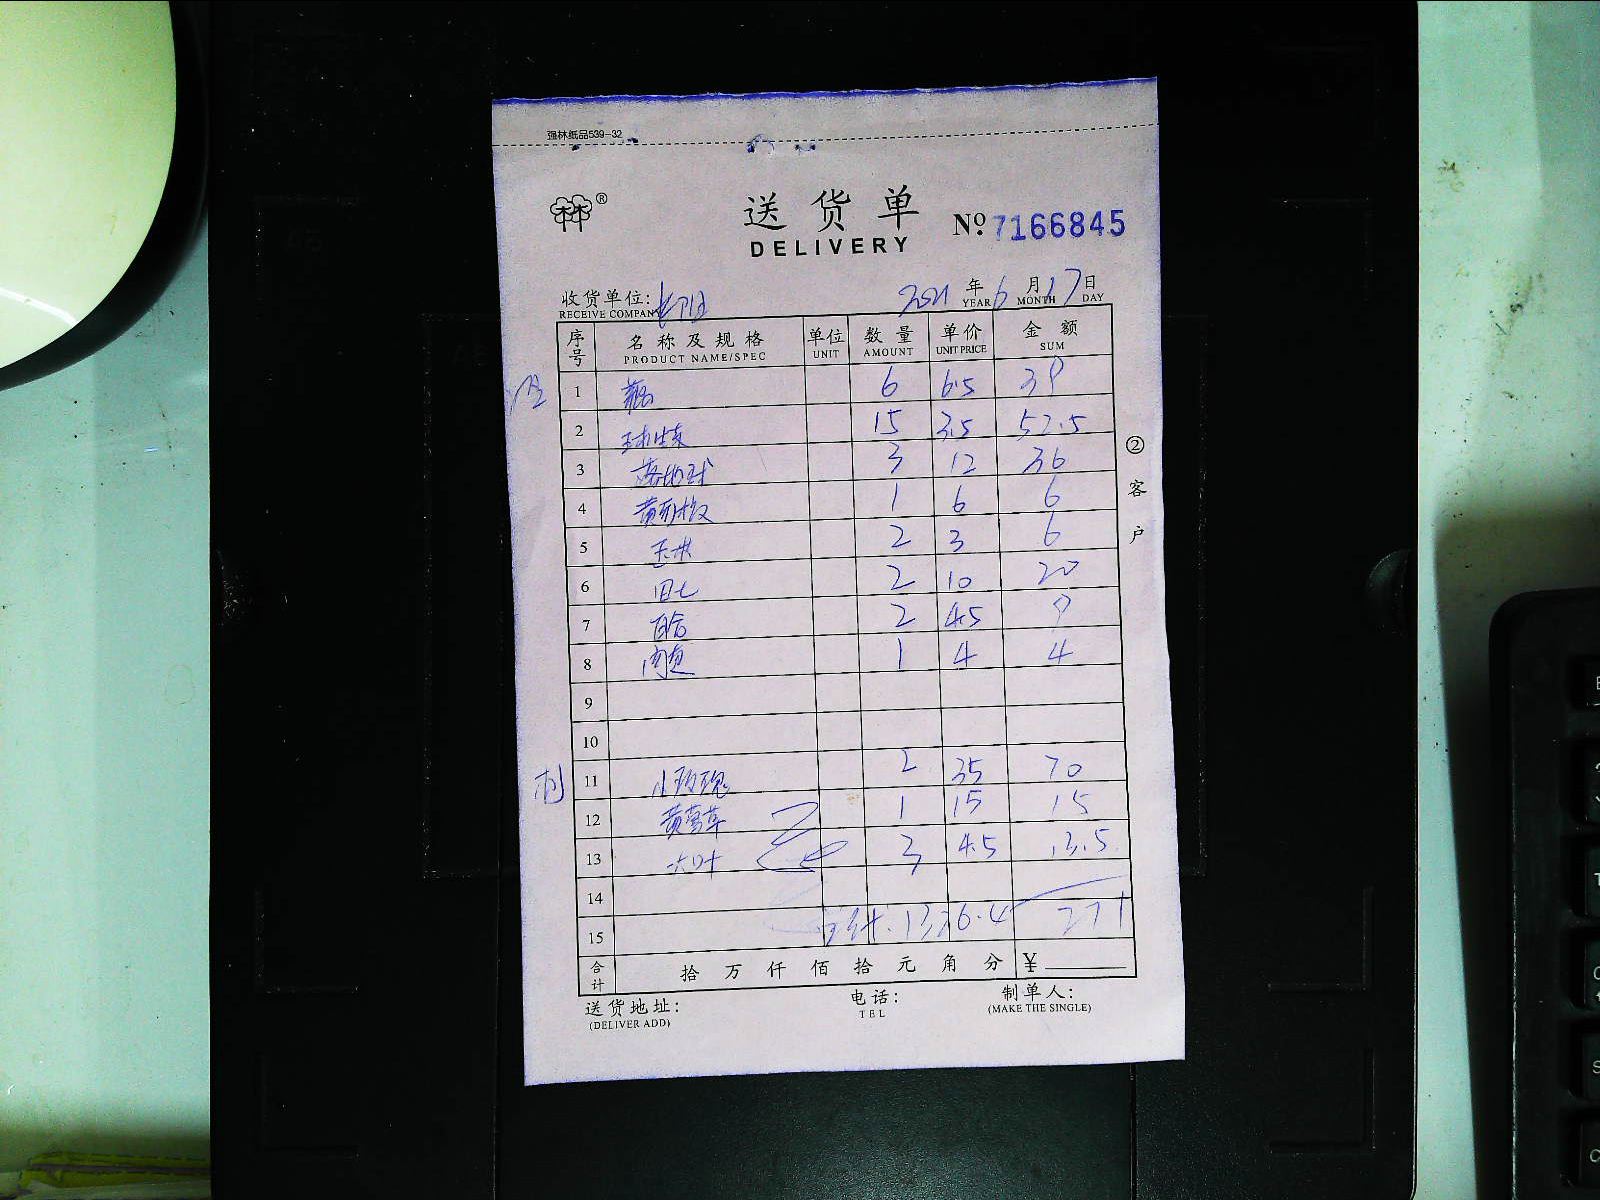 强林纸品539-32
林林®
送货单
DELIVERY
Nº 7166845
收货单位:
RECEIVE COMPANY
2021 年 6 月 17 日
YEAR MONTH DAY
序号 名称及规格 单位 数量 单价 金额
PRODUCT NAME/SPEC UNIT AMOUNT UNIT PRICE SUM
1 6 6.5 39
2 15 3.5 52.5
3 落地球 3 12 36
4 1 6 6
5 玉米 2 3 6
6 田七 2 10 20
7 百合 2 4.5 9
8 1 4 4
9
10
11 小玫瑰 2 35 70
12 黄莺草 1 15 15
13 3 4.5 13.5
14
15 271
合计 拾 万 仟 佰 拾 元 角 分 ¥
送货地址: 电话: 制单人:
(DELIVER ADD) TEL (MAKE THE SINGLE)
② 客户